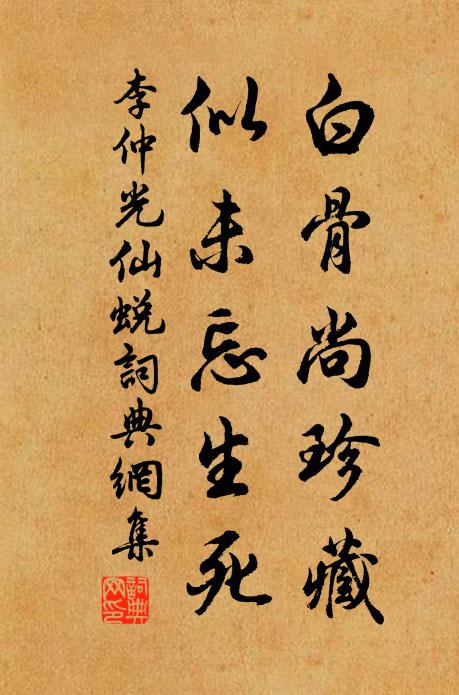 白骨尚珍藏
似未忘生死
李仲光仙蛻詞典網集
詞典網印